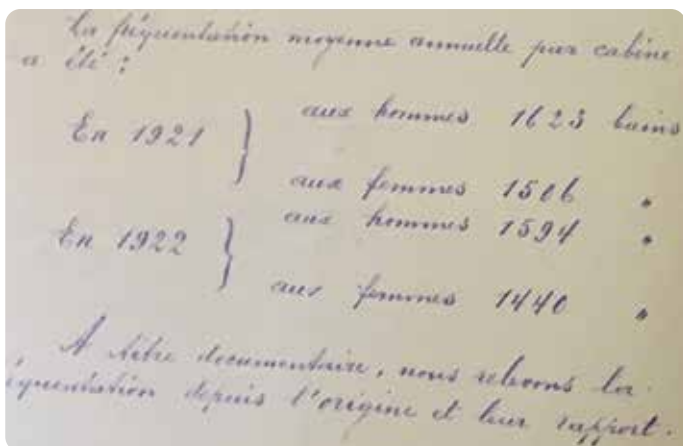 La fréquentation moyenne annuelle par cabine
a été :
aux hommes 1623 bains
En 1921 }
aux femmes 1506 "
aux hommes 1594 "
En 1922 }
aux femmes 1440 "
A titre documentaire, nous relevons la
fréquentation depuis l'origine et leur rapport.